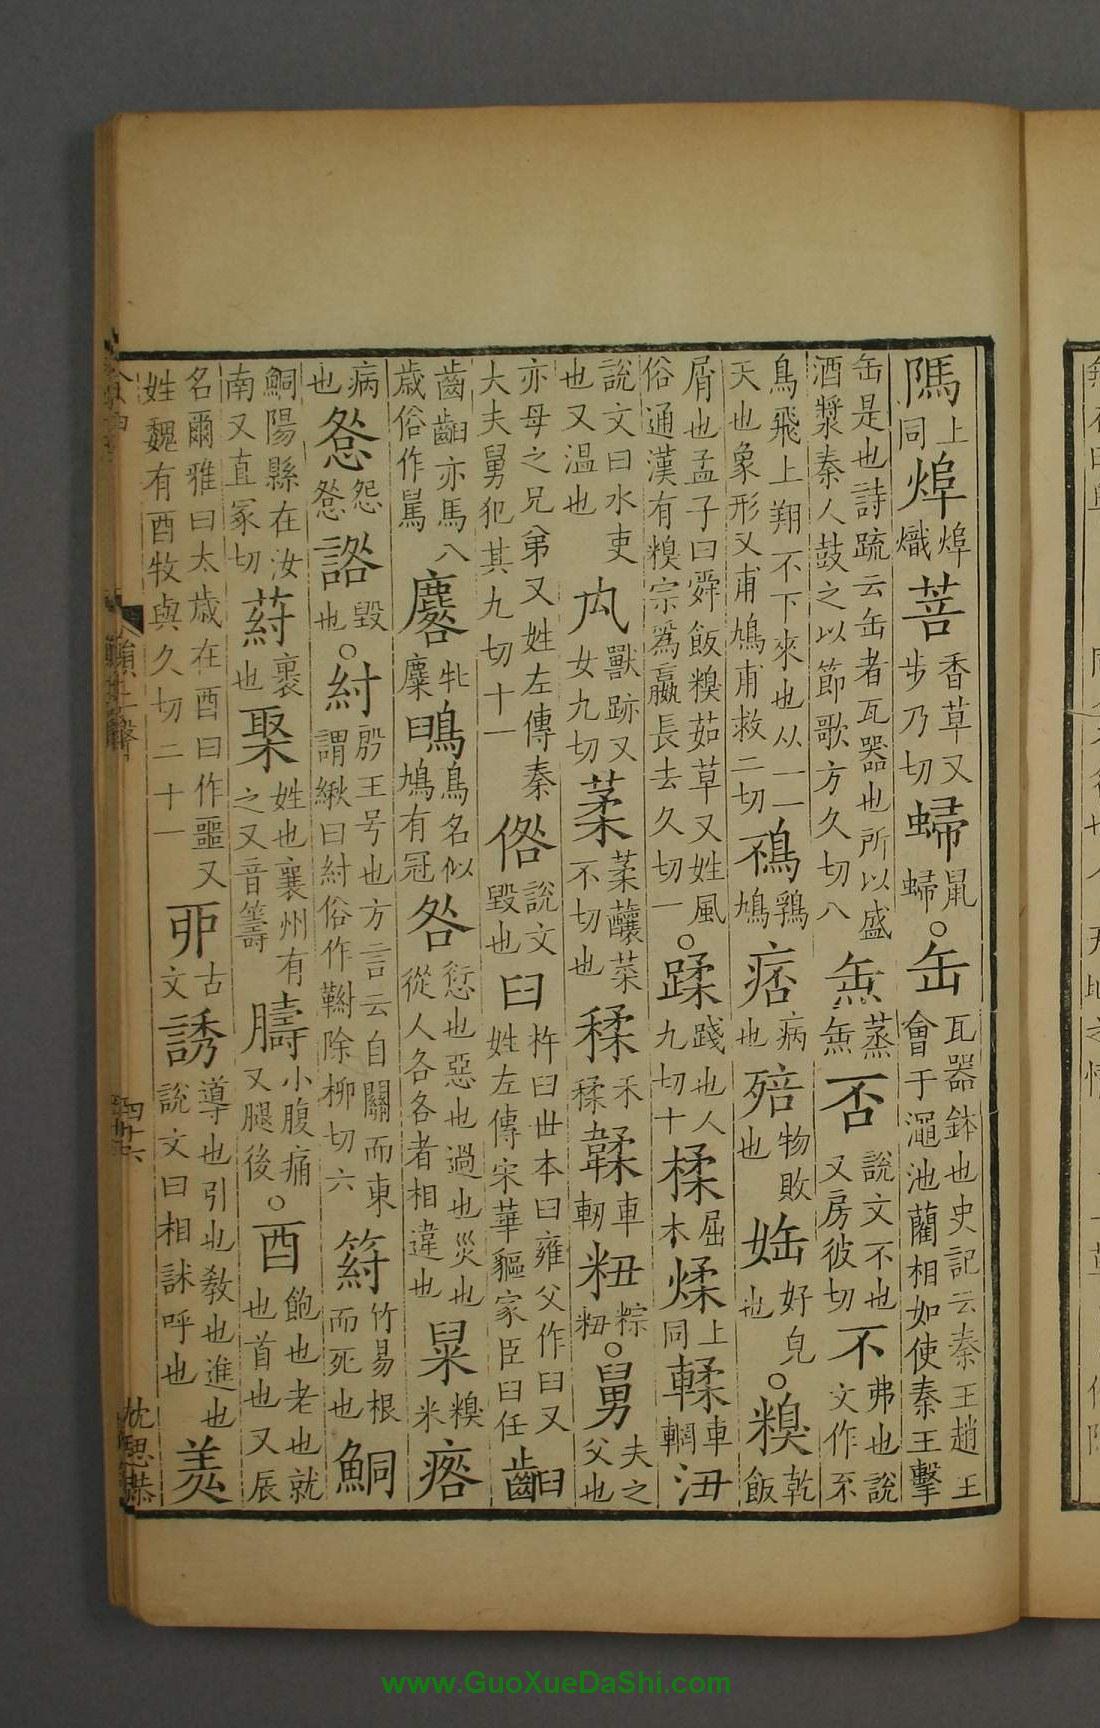 隝上同𤇏𤇏熾菩香草又步乃切䗱鼠䗱○缶瓦器鉢也史記云秦王趙王會于澠池藺相如使秦王擊
缶是也詩䟽云缶者瓦器也所以盛酒漿秦人鼓之以節歌方久切八缹蒸缹否說文不也又房彼切不弗也說文作不
鳥飛上翔不下來也从一一天也象形又甫鳩甫救二切鴀鴀鳩痞病也㱟物敗也㛅好皃也○糗乾飯
屑也孟子曰舜飯糗茹草又姓風俗通漢有糗宗爲嬴長去久切一○蹂踐也人九切十揉屈木煣上同輮車輞沑
說文曰水吏也又温也禸獸跡又女九切葇葇䕽菜不切也䋴禾䋴䩞車軔粈粽粈○舅夫之父也
亦母之兄弟又姓左傳秦大夫舅犯其九切十一倃說文毀也臼杵臼世本曰雍父作臼又姓左傳宋華貙家臣臼任齨
齒齨亦馬八歲俗作𩥈麔牝麋鴭鳥名似鳩有冠咎愆也惡也過也災也從人各各者相違也㮑糗米㾪
病也慦怨慦䛮毀也○紂殷王号也方言云自關而東謂緧曰紂俗作䩜除柳切六䈙竹易根而死也鮦
鮦陽縣在汝南又直冢切葤裹也㝡姓也襄州有之又音籌䐭小腹痛又腿後○酉飽也老也就也首也又辰
名爾雅曰太歲在酉曰作噩又姓魏有酉牧與久切二十一丣古文誘導也引也教也進也說文曰相訹呼也羑
四十六
沈思恭
www.GuoXueDaShi.com